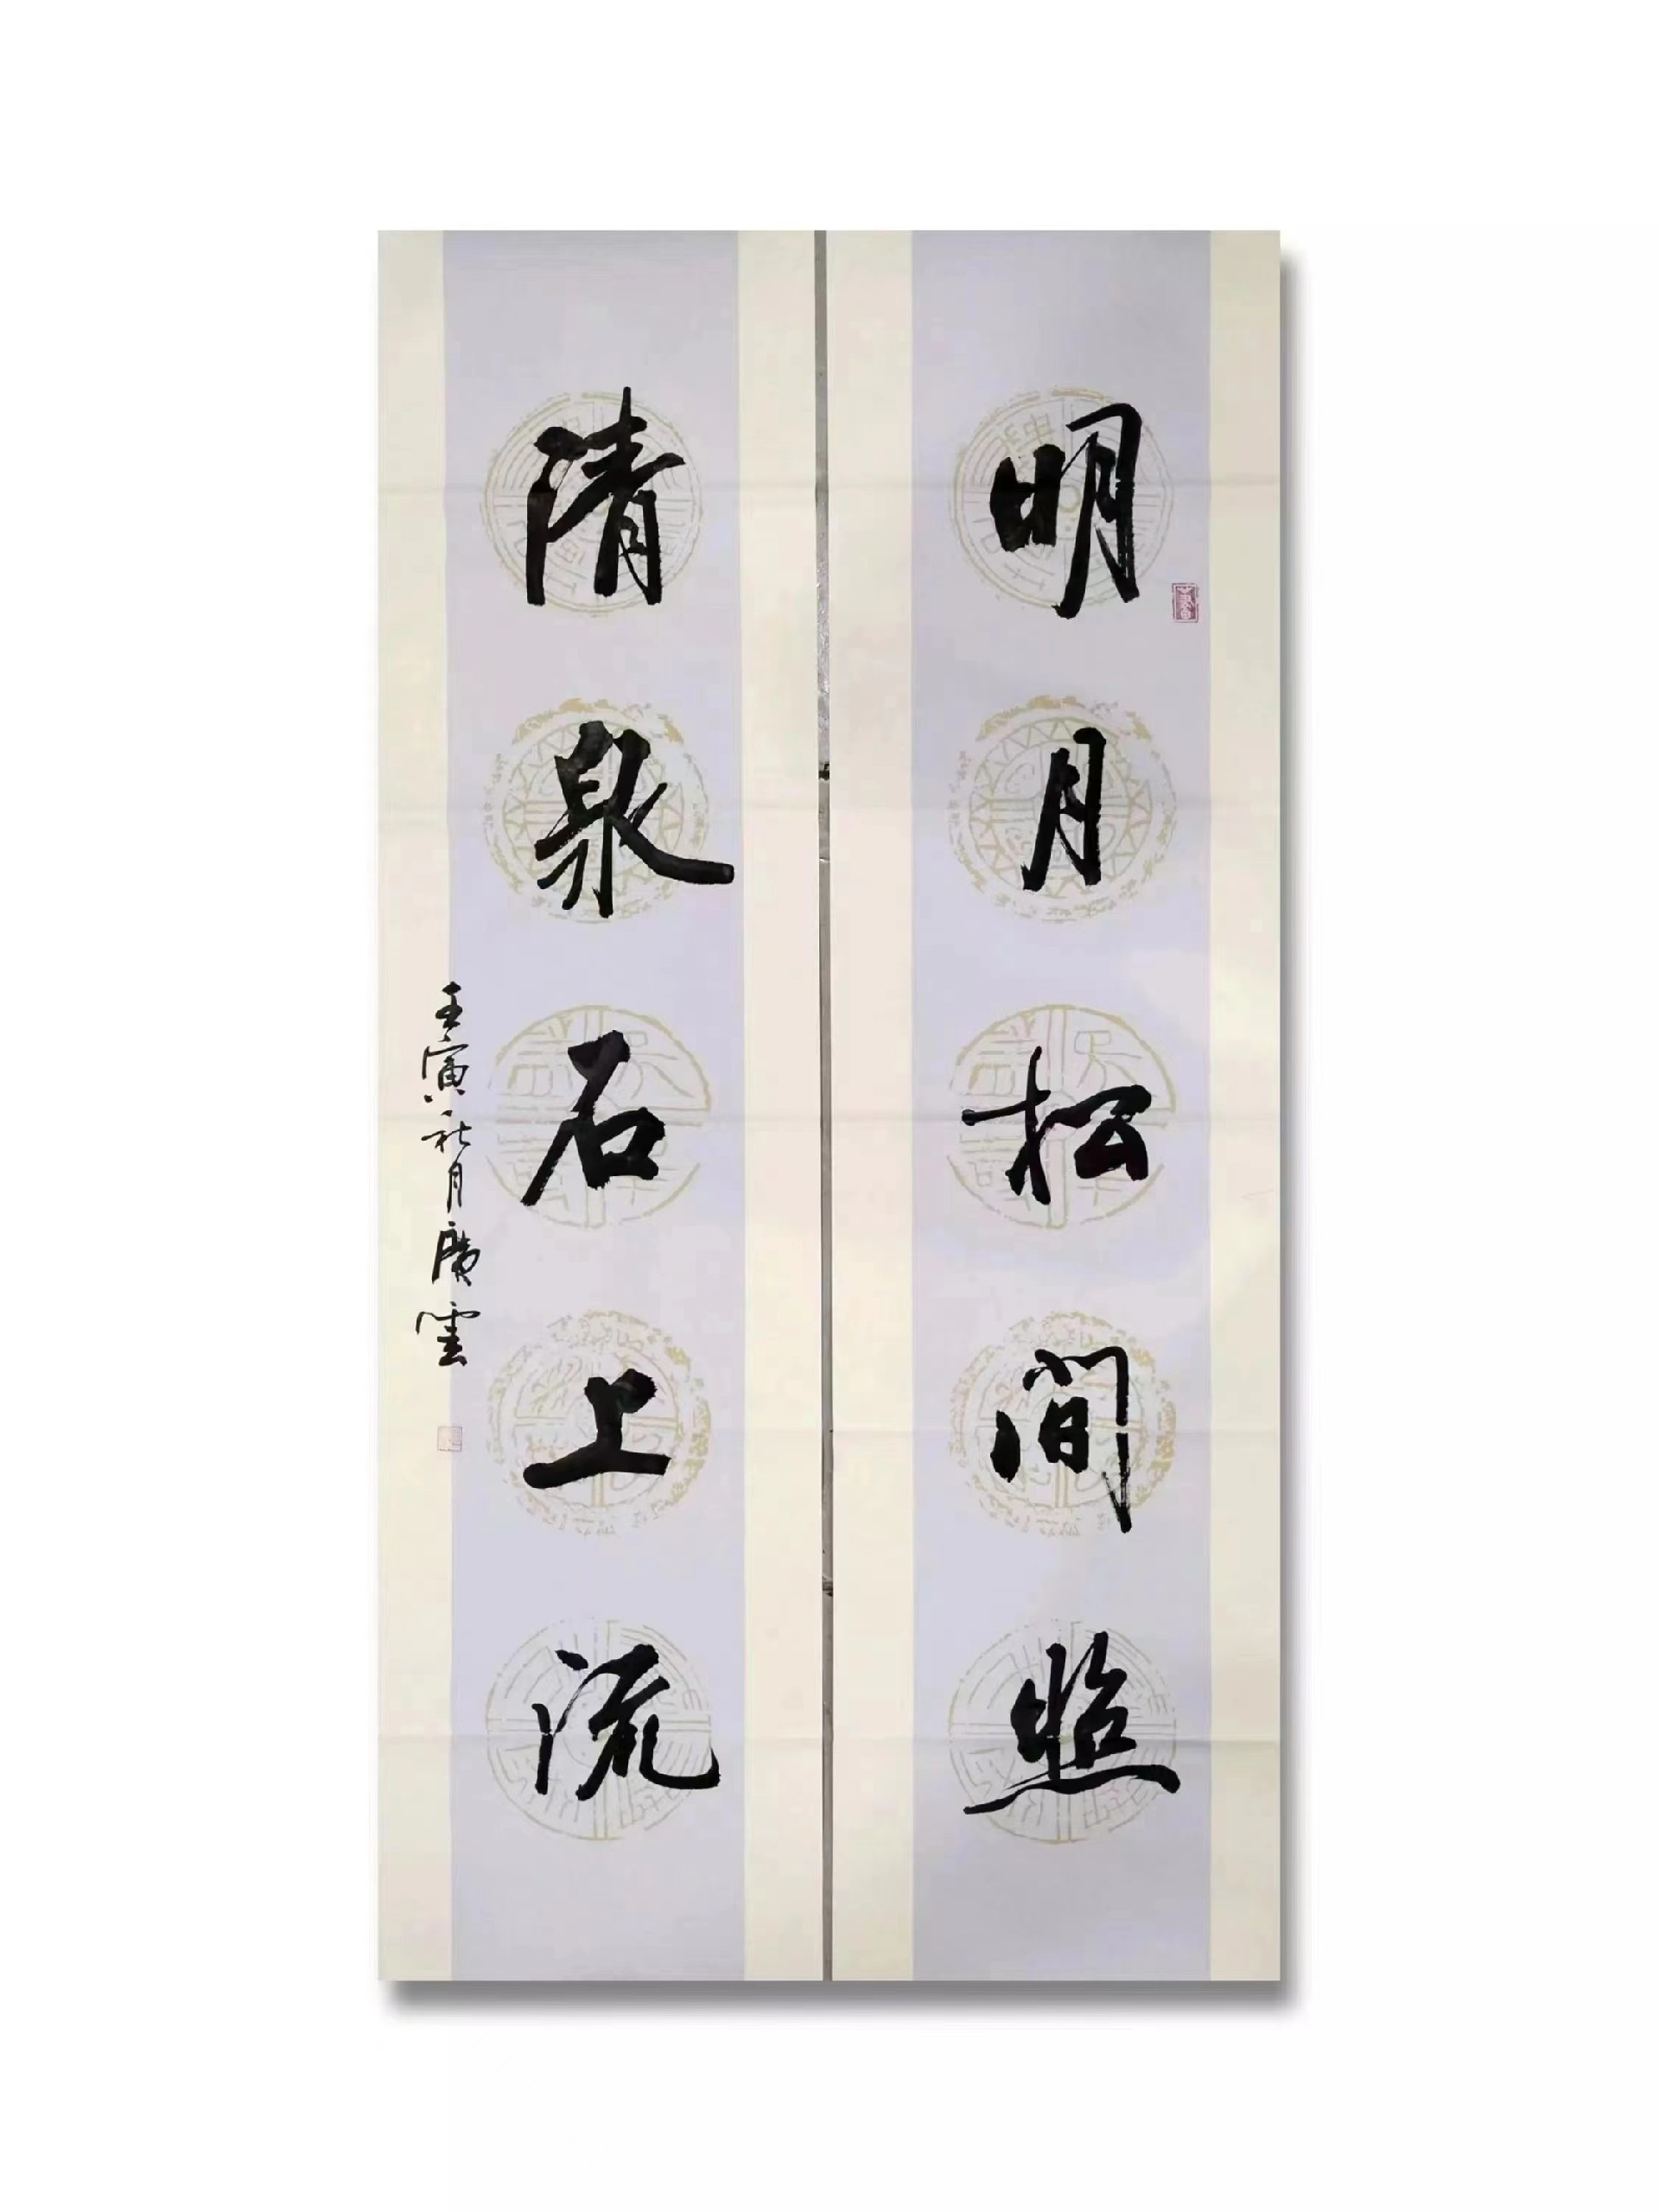 明月松间照
清泉石上流
壬寅秋月廣雲